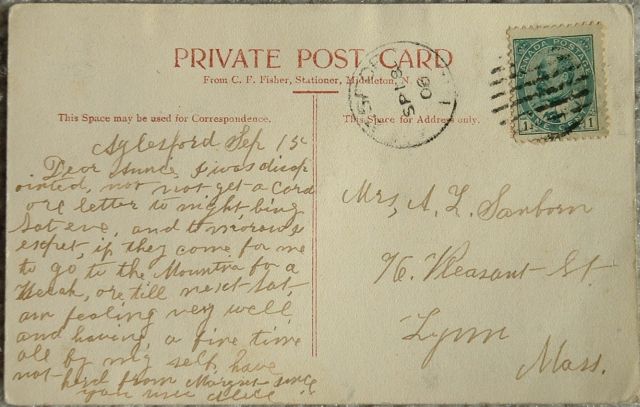 PRIVATE POST CARD
From C. F. Fisher, Stationer, Middleton, N.
This Space may be used for Correspondence.
This Space for Address only.
SP 18
08
CANADA POSTAGE
1 1
Aylesford Sep 15
Dear Aunie, I was disap
ointed, not get a Card
ore letter to night, bing
Sat eve, and to morrow
exspet, if they come for me
to go to the Mountin for a
Weeak, ore till next Sat,
am feeling very well,
and having a fine time
all by my self, have
not herd from Margret since
you Alice
Mrs, A. L. Sanborn
Pleasant St.
Lynn
Mass.